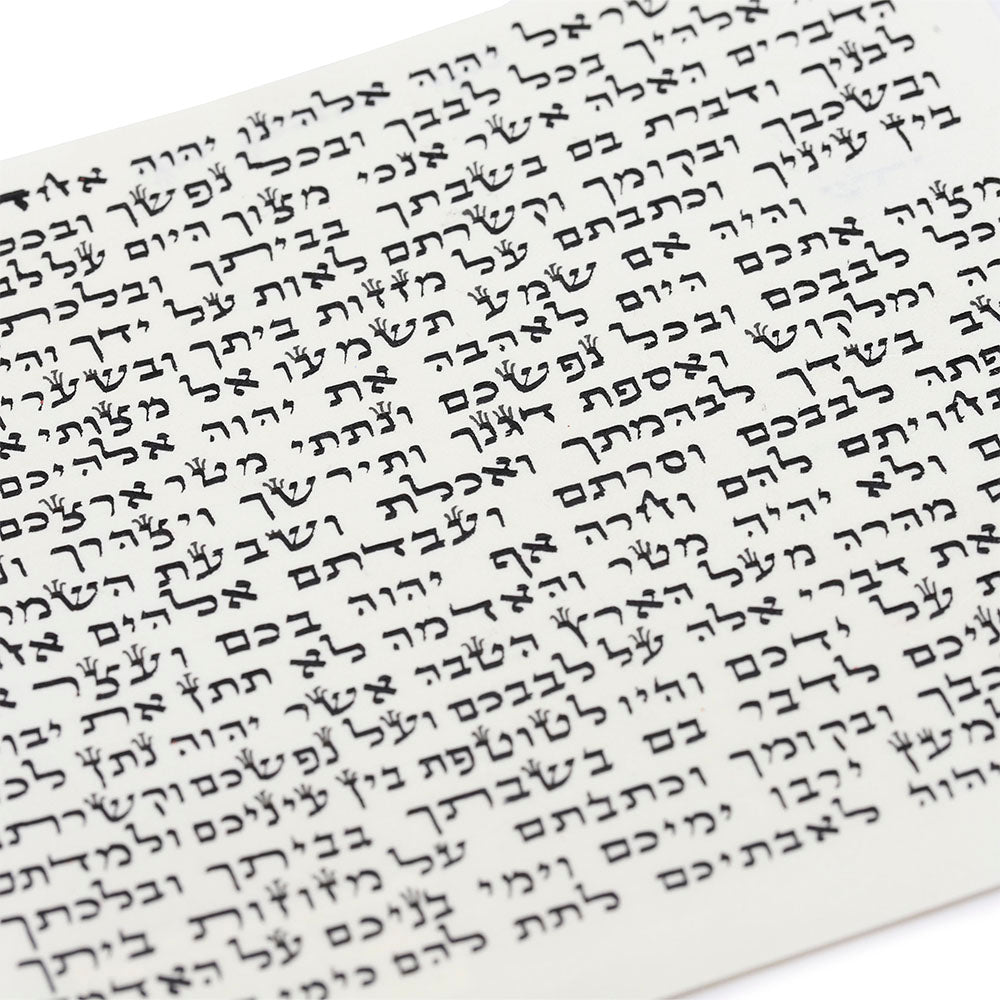 יהוה אלהינו יהוה אחד
אלהיך בכל לבבך ובכל נפשך
הדברים האלה אשר אנכי מצוך היום על
לבניך ודברת בם בשבתך בביתך
ובשכבך ובקומך וקשרתם לאות על ידך
בין עיניך וכתבתם על מזזות ביתך
והיה אם שמע תשמעו אל מצותי
מצוה אתכם היום לאהבה את יהוה אלהיכם
בכל לבבכם ובכל נפשכם ונתתי מטר ארצכם
ומלקוש ואספת דגנך ותירשך ויצהרך
בשדך לבהמתך ואכלת ושבעת
לבבכם וסרתם ועבדתם אלהים
להם וחרה אף יהוה בכם ועצר
ולא יהיה מטר והאדמה לא תתן את
מהרה מעל הארץ הטבה אשר יהוה נתן
את דברי אלה על לבבכם ועל נפשכם
על ידכם והיו לטוטפת בין עיניכם ולמדתם
לדבר בם בשבתך בביתך ובלכתך
ובקומך וכתבתם על מזוזות ביתך
ירבו ימיכם וימי בניכם על
יהוה לאבתיכם לתת להם כימי